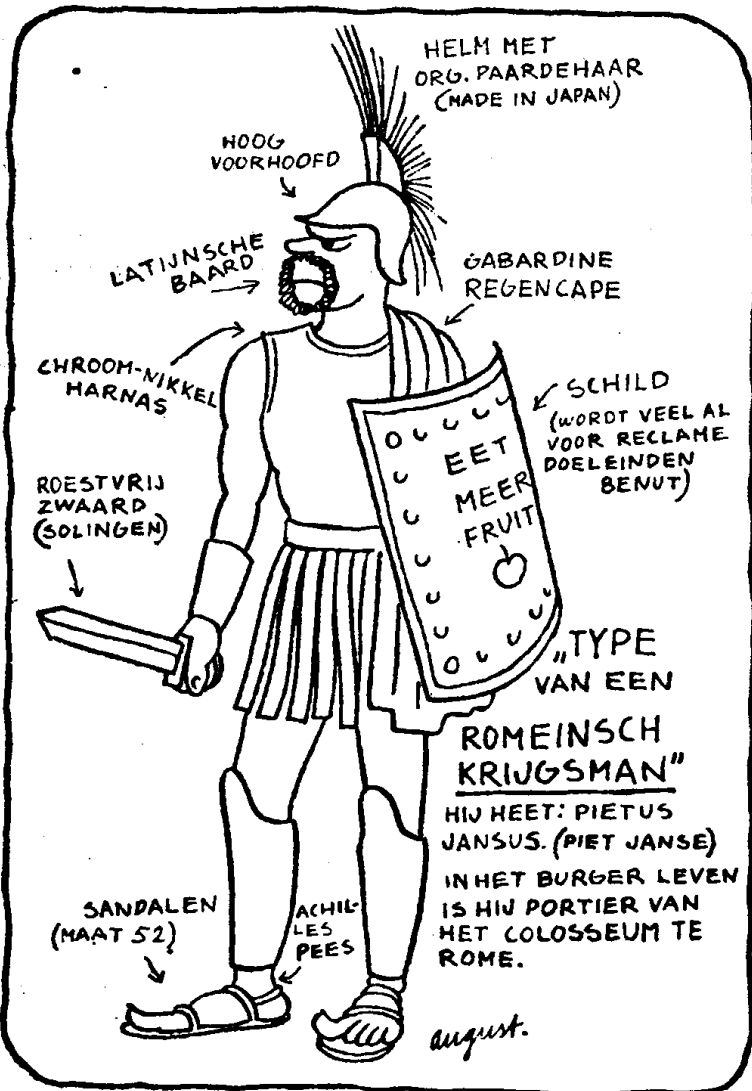 HELM MET
ORG. PAARDEHAAR
(MADE IN JAPAN)
HOOG
VOORHOOFD
LATIJNSCHE
BAARD
GABARDINE
REGENCAPE
CHROOM-NIKKEL
HARNAS
SCHILD
(WORDT VEEL AL
VOOR RECLAME
DOELEINDEN
BENUT)
EET
MEER
FRUIT
ROESTVRIJ
ZWAARD
(SOLINGEN)
„TYPE
VAN EEN
ROMEINSCH
KRIJGSMAN”
HIJ HEET: PIETUS
JANSUS. (PIET JANSE)
IN HET BURGER LEVEN
IS HIJ PORTIER VAN
HET COLOSSEUM TE
ROME.
SANDALEN
(MAAT 52)
ACHIL-
LES
PEES
august.